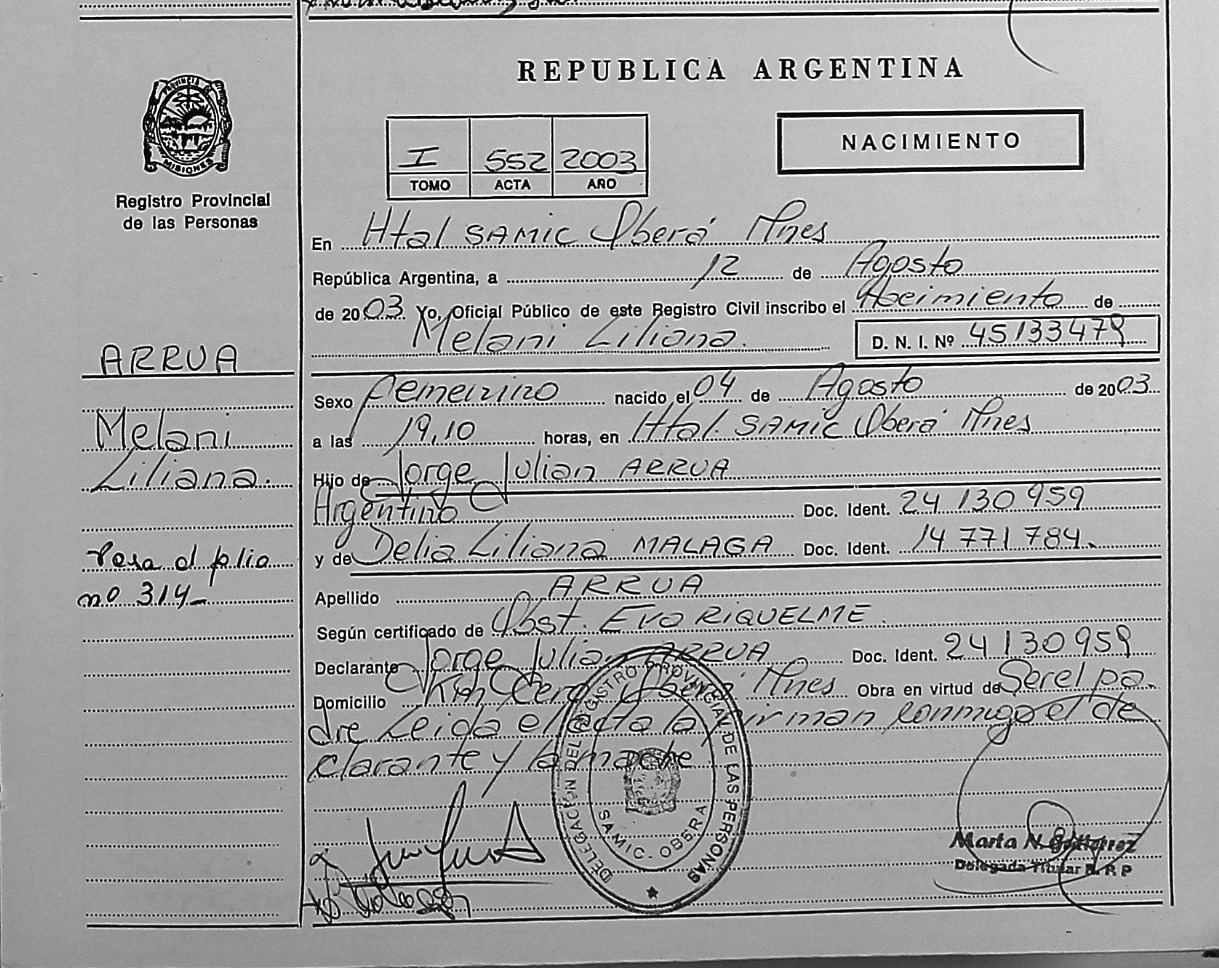 REPUBLICA ARGENTINA
PROVINCIA DE
MISIONES
Registro Provincial
de las Personas
I 552 2003
TOMO ACTA AÑO
NACIMIENTO
En Htal SAMIC Oberá Mnes
República Argentina, a 12 de Agosto
de 2003 Yo, Oficial Público de este Registro Civil inscribo el Nacimiento de
Melani Liliana.
D. N. I. Nº 45133479
ARRUA
Melani
Liliana.
Pasa al folio
nº 314_
Sexo Femenino nacido el 04 de Agosto de 2003
a las 19,10 horas, en Htal. SAMIC Oberá Mnes
Hijo de Jorge Julian ARRUA
Argentino Doc. Ident. 24 130 959
y de Delia Liliana MALAGA Doc. Ident. 14 771 784.
Apellido ARRUA
Según certificado de Obst. EVO RIQUELME.
Declarante Jorge Julian ARRUA Doc. Ident. 24 130 959
Domicilio Km Cero Oberá Mnes Obra en virtud de Ser el pa-
dre Leida el acta la firman conmigo el de
clarante y la madre
DELEGACION DEL REGISTRO PROVINCIAL DE LAS PERSONAS
SAMIC. OBERA
Marta N. Gutierrez
Delegada Titular R. P. P